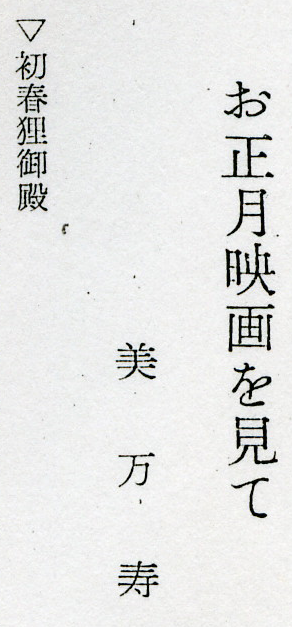 お正月映画を見て
美万寿
▽初春狸御殿